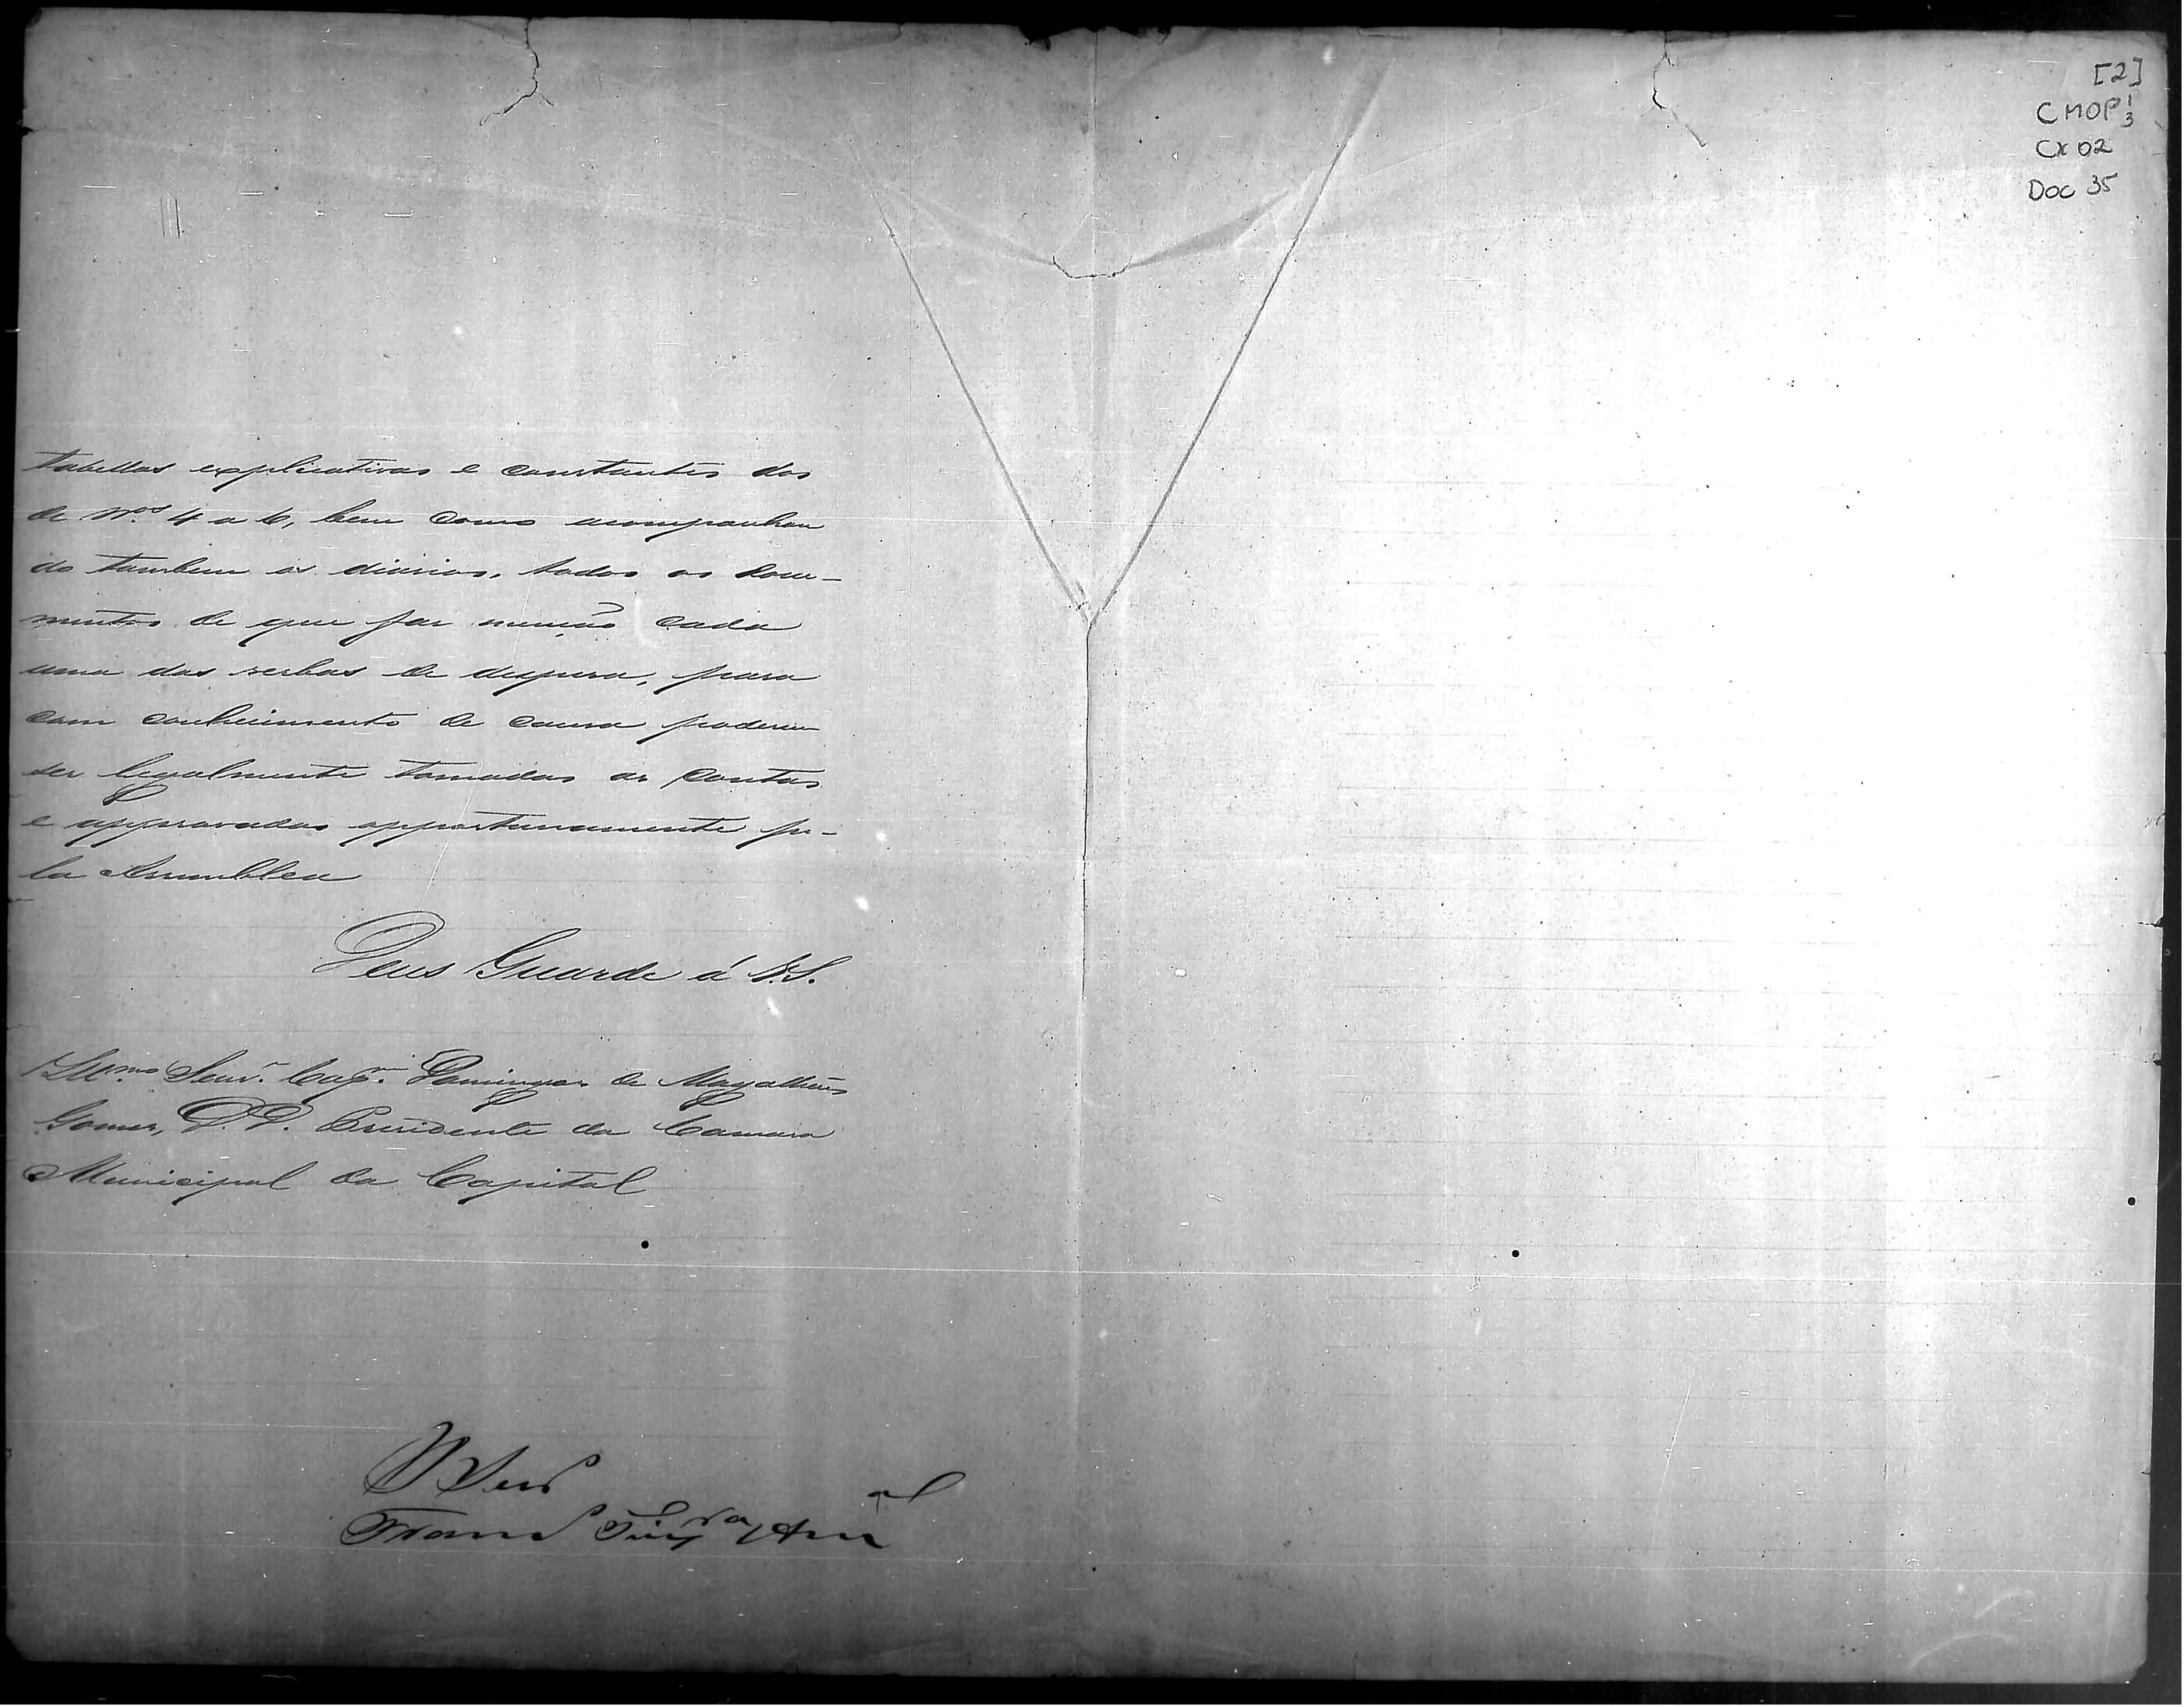 [2]
CMOP 1/3
Cx 02
Doc 35
tabellas explicativas e constantes dos
de Nos. 4 a 6, bem como acompanhan
do tambem os diarios, todos os docu-
mentos de que faz menção cada
uma das verbas de despesa, para
com conhecimento de causa poderem
ser legalmente tomadas as contas
e approvadas opportunamente pe-
la Assemblea
Deus Guarde á V.S.
Illmo. Senr. Capm. Domingos de Magalhães
Gomes, D.D. Presidente da Camara
Municipal da Capital